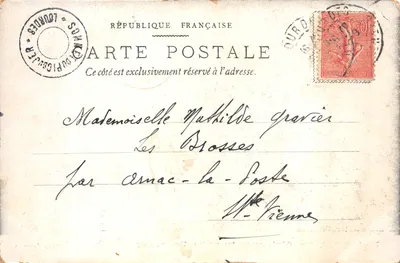 RÉPUBLIQUE FRANÇAISE
CARTE POSTALE
Ce côté est exclusivement réservé à l'adresse.
SOMMET DU PIC DU JER
LOURDES
Mademoiselle Mathilde Gravier
Les Brosses
par Arnac-la-Poste
Hte Vienne